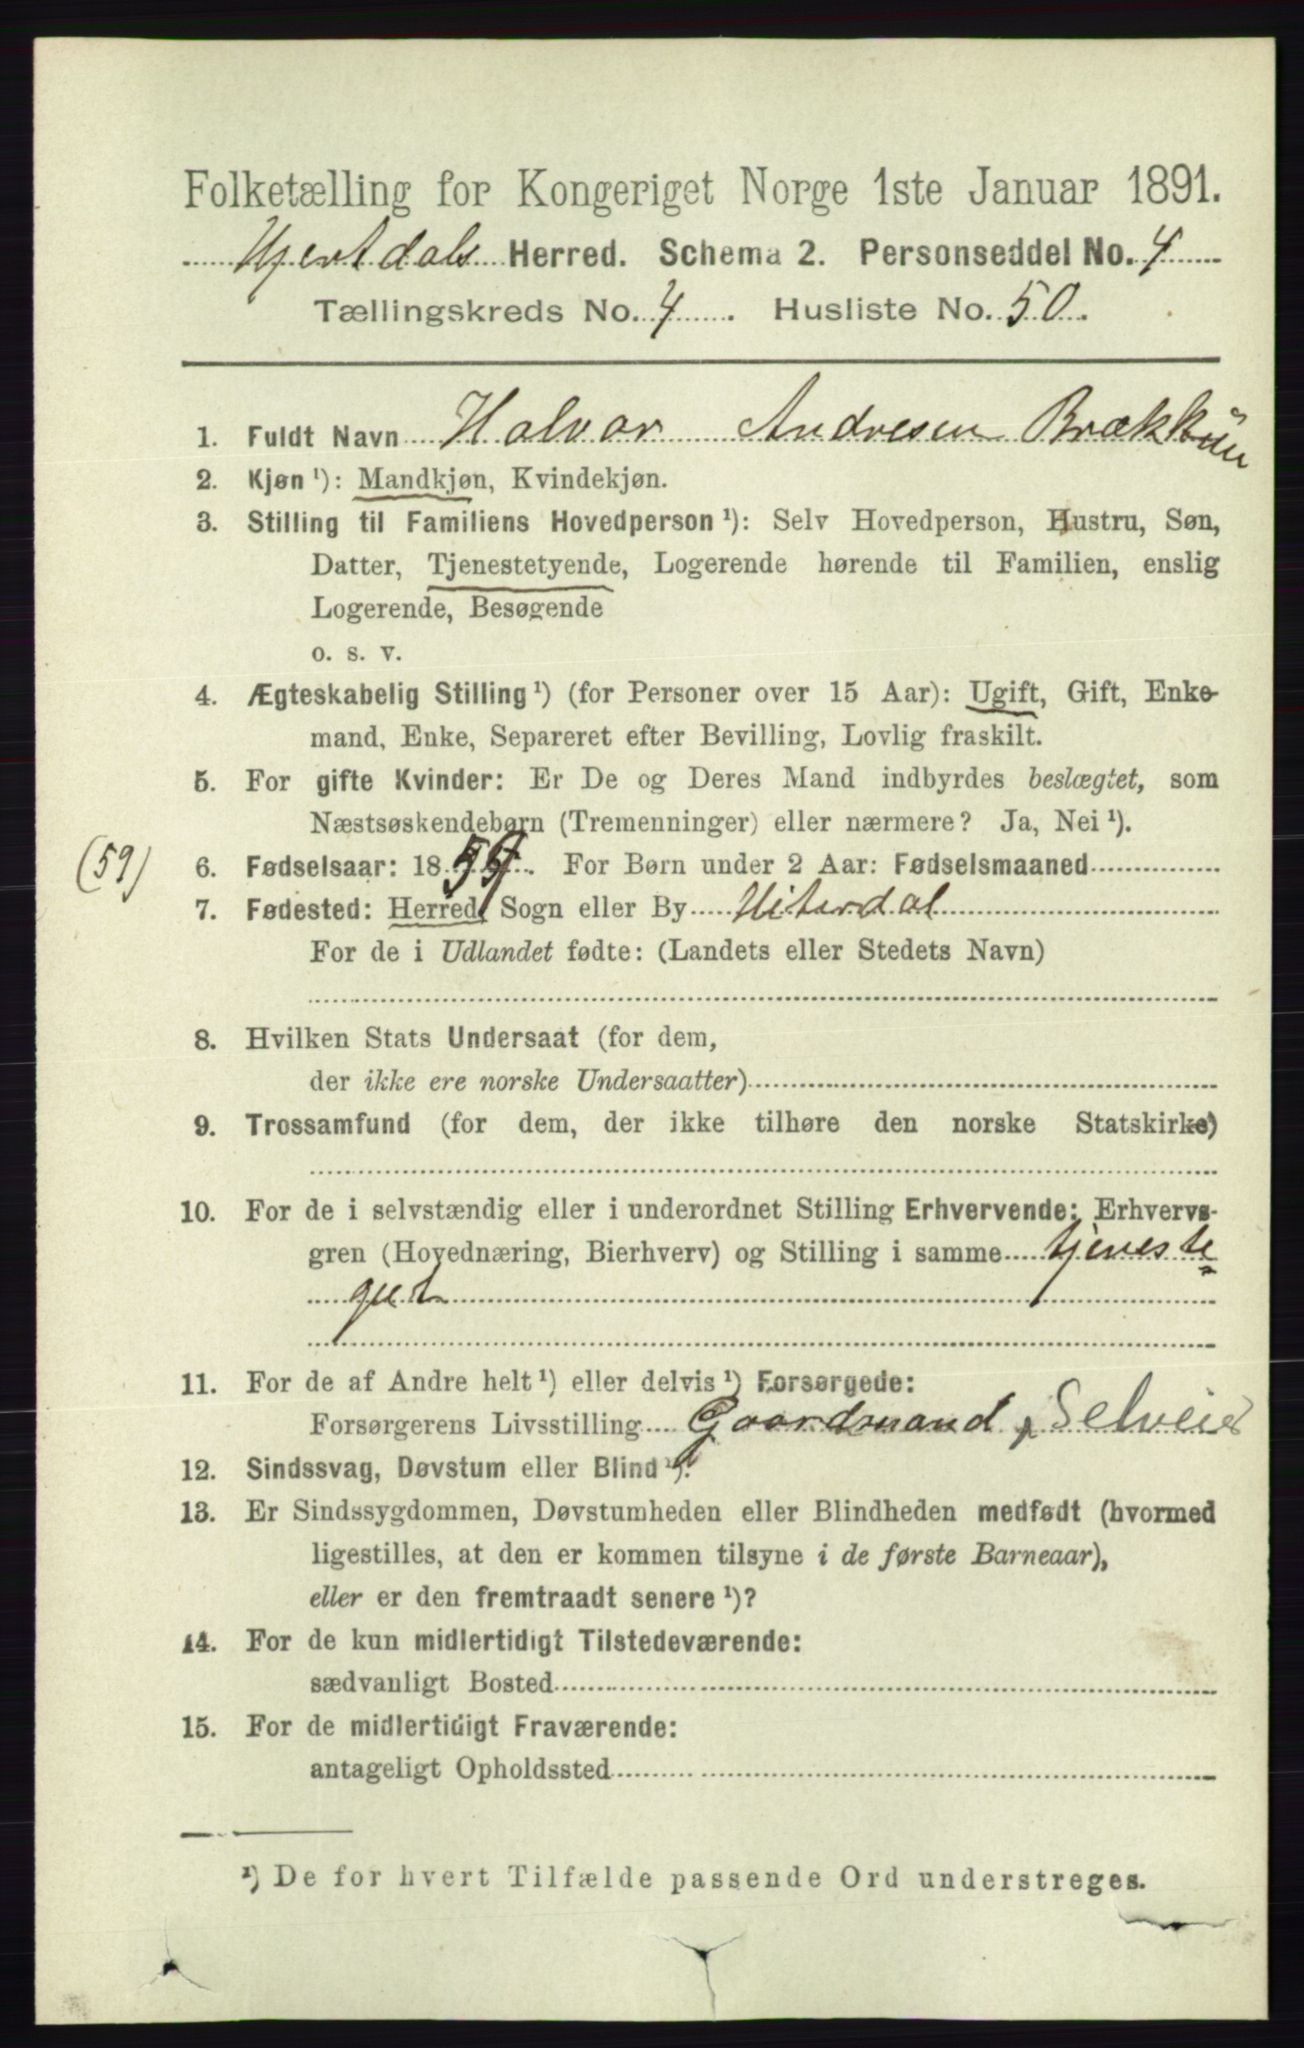 Folketælling for Kongeriget Norge 1ste Januar 1891.
Hjertdals Herred. Schema 2. Personseddel No. 4
Tællingskreds No. 4. Husliste No. 50.
1. Fuldt Navn Halvor Andresen
2. Kjøn ¹): Mandkjøn, Kvindekjøn.
3. Stilling til Familiens Hovedperson ¹): Selv Hovedperson, Hustru, Søn,
Datter, Tjenestetyende, Logerende hørende til Familien, enslig
Logerende, Besøgende
o. s. v.
4. Ægteskabelig Stilling ¹) (for Personer over 15 Aar): Ugift, Gift, Enke-
mand, Enke, Separeret efter Bevilling, Lovlig fraskilt.
5. For gifte Kvinder: Er De og Deres Mand indbyrdes beslægtet, som
Næstsøskendebørn (Tremenninger) eller nærmere? Ja, Nei ¹).
(59) 6. Fødselsaar: 1859. For Børn under 2 Aar: Fødselsmaaned
7. Fødested: Herred, Sogn eller By Hiterdal
For de i Udlandet fødte: (Landets eller Stedets Navn)
8. Hvilken Stats Undersaat (for dem,
der ikke ere norske Undersaatter)
9. Trossamfund (for dem, der ikke tilhøre den norske Statskirke)
10. For de i selvstændig eller i underordnet Stilling Erhvervende: Erhvervs-
gren (Hovednæring, Bierhverv) og Stilling i samme tjeneste
gut
11. For de af Andre helt ¹) eller delvis ¹) Forsørgede:
Forsørgerens Livsstilling Gaardmand, Selveier
12. Sindssvag, Døvstum eller Blind ¹).
13. Er Sindssygdommen, Døvstumheden eller Blindheden medfødt (hvormed
ligestilles, at den er kommen tilsyne i de første Barneaar),
eller er den fremtraadt senere ¹)?
14. For de kun midlertidigt Tilstedeværende:
sædvanligt Bosted
15. For de midlertidigt Fraværende:
antageligt Opholdssted
¹) De for hvert Tilfælde passende Ord understreges.